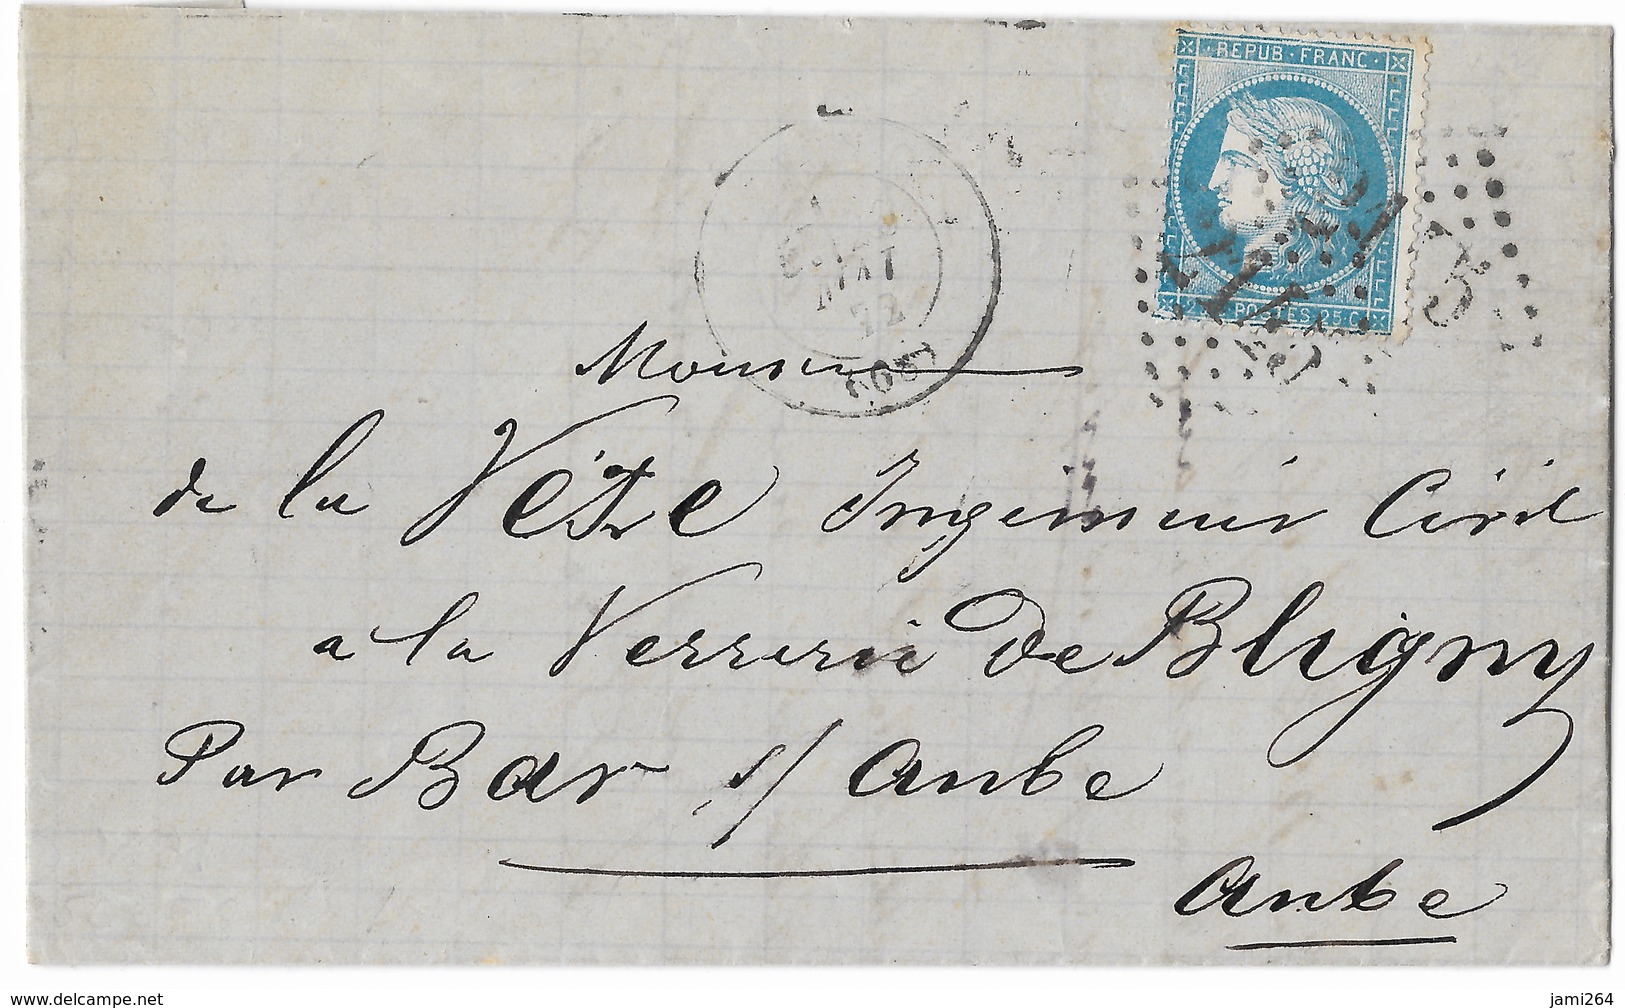 REPUB · FRANC ·
POSTES 25 C
72
(60)
Monsieur
de la Vêtre Ingénieur Civil
a la Verrerie De Bligny
Par Bar s/ Aube
Aube
www.delcampe.net
jami264